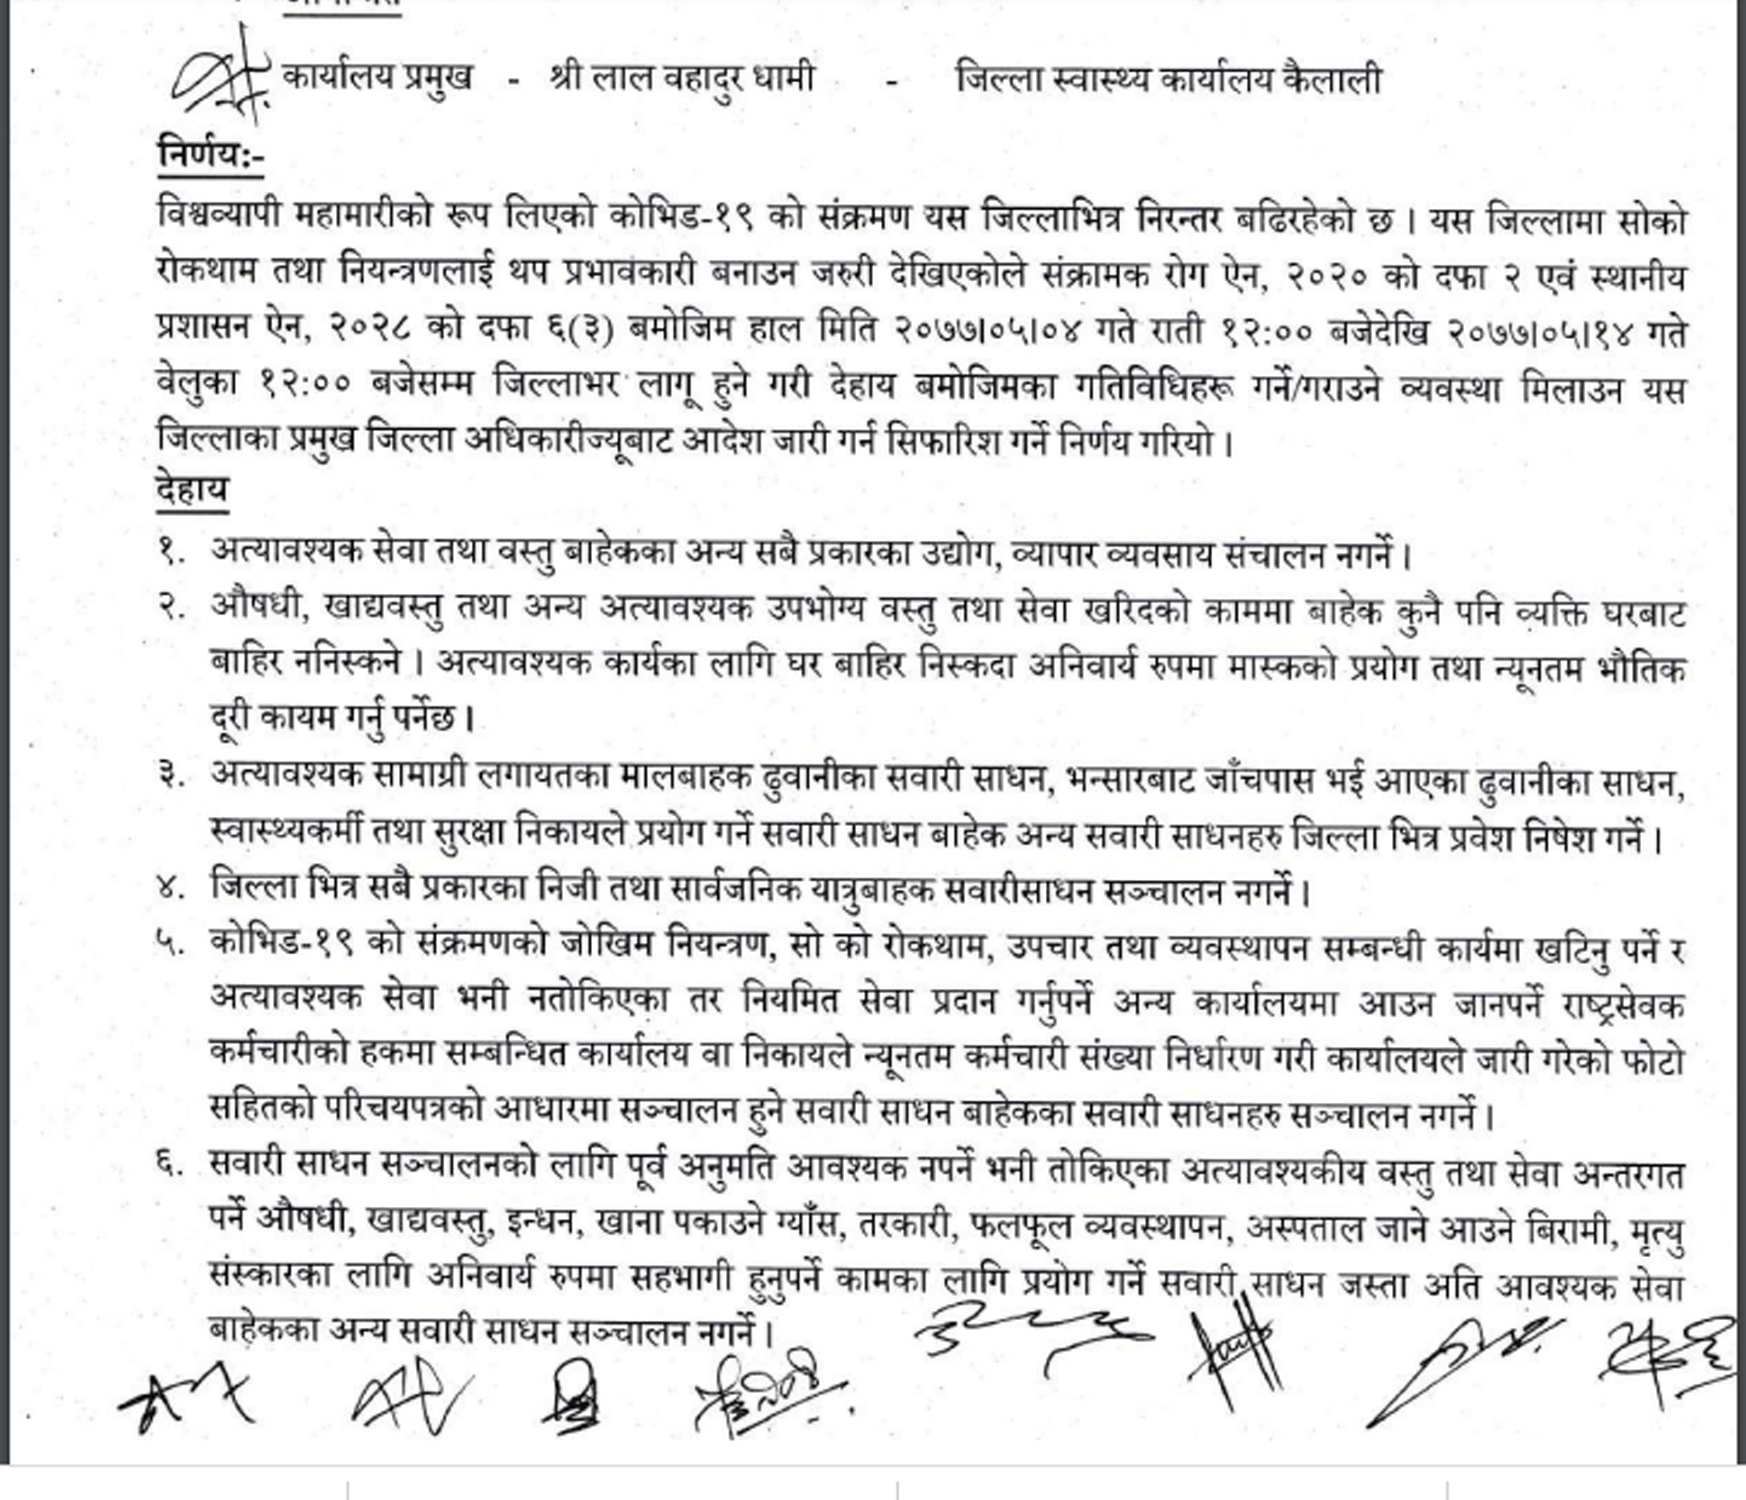 कार्यालय प्रमुख - श्री लाल वहादुर धामी - जिल्ला स्वास्थ्य कार्यालय कैलाली
निर्णयः-
विश्वव्यापी महामारीको रूप लिएको कोभिड-१९ को संक्रमण यस जिल्लाभित्र निरन्तर बढिरहेको छ । यस जिल्लामा सोको
रोकथाम तथा नियन्त्रणलाई थप प्रभावकारी बनाउन जरुरी देखिएकोले संक्रामक रोग ऐन, २०२० को दफा २ एवं स्थानीय
प्रशासन ऐन, २०२८ को दफा ६(३) बमोजिम हाल मिति २०७७।०५।०४ गते राती १२:०० बजेदेखि २०७७।०५।१४ गते
वेलुका १२:०० बजेसम्म जिल्लाभर लागू हुने गरी देहाय बमोजिमका गतिविधिहरू गर्ने/गराउने व्यवस्था मिलाउन यस
जिल्लाका प्रमुख जिल्ला अधिकारीज्यूबाट आदेश जारी गर्न सिफारिश गर्ने निर्णय गरियो ।
देहाय
१. अत्यावश्यक सेवा तथा वस्तु बाहेकका अन्य सबै प्रकारका उद्योग, व्यापार व्यवसाय संचालन नगर्ने ।
२. औषधी, खाद्यवस्तु तथा अन्य अत्यावश्यक उपभोग्य वस्तु तथा सेवा खरिदको काममा बाहेक कुनै पनि व्यक्ति घरबाट
बाहिर ननिस्कने । अत्यावश्यक कार्यका लागि घर बाहिर निस्कदा अनिवार्य रुपमा मास्कको प्रयोग तथा न्यूनतम भौतिक
दूरी कायम गर्नु पर्नेछ ।
३. अत्यावश्यक सामाग्री लगायतका मालबाहक ढुवानीका सवारी साधन, भन्सारबाट जाँचपास भई आएका ढुवानीका साधन,
स्वास्थ्यकर्मी तथा सुरक्षा निकायले प्रयोग गर्ने सवारी साधन बाहेक अन्य सवारी साधनहरु जिल्ला भित्र प्रवेश निषेश गर्ने ।
४. जिल्ला भित्र सबै प्रकारका निजी तथा सार्वजनिक यात्रुबाहक सवारीसाधन सञ्चालन नगर्ने ।
५. कोभिड-१९ को संक्रमणको जोखिम नियन्त्रण, सो को रोकथाम, उपचार तथा व्यवस्थापन सम्बन्धी कार्यमा खटिनु पर्ने र
अत्यावश्यक सेवा भनी नतोकिएका तर नियमित सेवा प्रदान गर्नुपर्ने अन्य कार्यालयमा आउन जानपर्ने राष्ट्रसेवक
कर्मचारीको हकमा सम्बन्धित कार्यालय वा निकायले न्यूनतम कर्मचारी संख्या निर्धारण गरी कार्यालयले जारी गरेको फोटो
सहितको परिचयपत्रको आधारमा सञ्चालन हुने सवारी साधन बाहेकका सवारी साधनहरु सञ्चालन नगर्ने ।
६. सवारी साधन सञ्चालनको लागि पूर्व अनुमति आवश्यक नपर्ने भनी तोकिएका अत्यावश्यकीय वस्तु तथा सेवा अन्तरगत
पर्ने औषधी, खाद्यवस्तु, इन्धन, खाना पकाउने ग्याँस, तरकारी, फलफूल व्यवस्थापन, अस्पताल जाने आउने बिरामी, मृत्यु
संस्कारका लागि अनिवार्य रुपमा सहभागी हुनुपर्ने कामका लागि प्रयोग गर्ने सवारी साधन जस्ता अति आवश्यक सेवा
बाहेकका अन्य सवारी साधन सञ्चालन नगर्ने ।